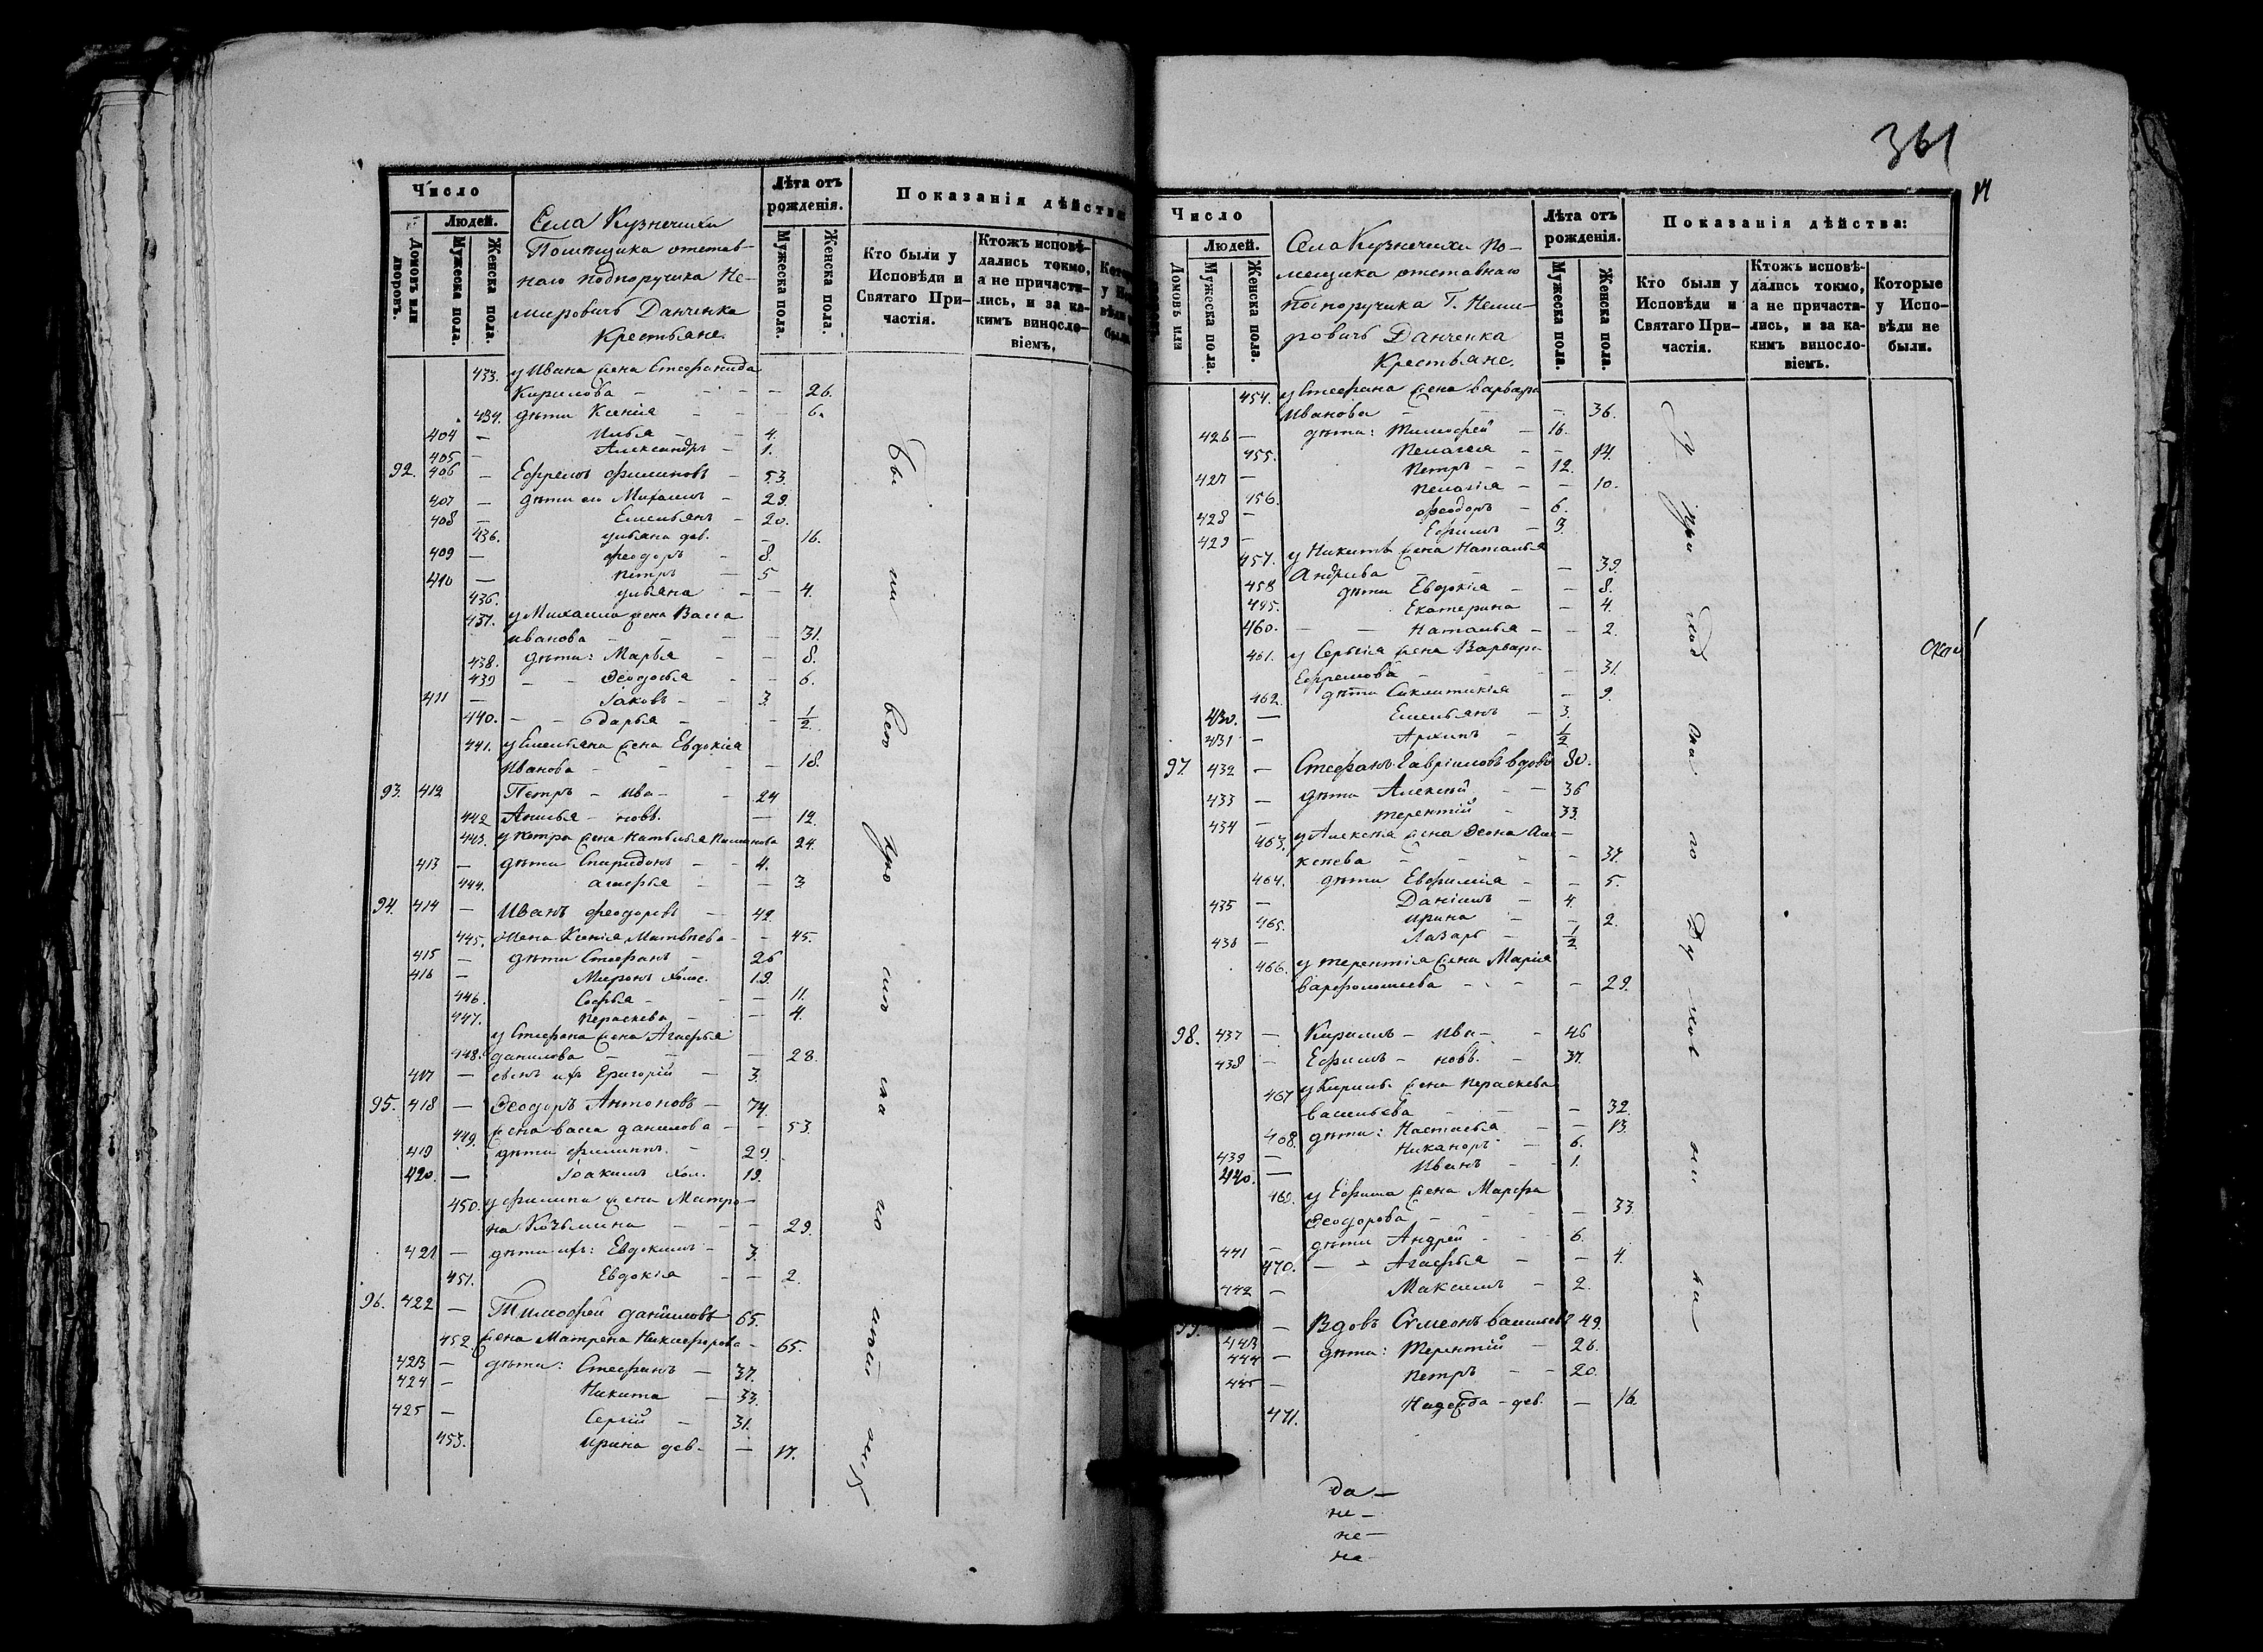 361
14
Число
Людей.
Домовъ или дворовъ.
Мужеска пола.
Женска пола.
Села Кузнечихи
Помѣщика отстав-
наго подпоручика Не-
мировичъ Данченка
Крестьяне.
Лѣта отъ рожденія.
Мужеска пола.
Женска пола.
Показанія дѣйства
Кто были у Исповѣди и Святаго При-частія.
Ктожъ исповѣ-дались токмо, а не причасти-лись, и за ка-кимъ виносло-віемъ.
433. у Ивана жена Стефанида
Кирилова – – 26.
434. дѣти Ксенія – – 6.
404 – Илья – 4.
405 – Александръ – 1.
92. 406 – Ефремъ Филиповъ – 53.
407 – дѣти его Михаилъ – 29.
408 – Емельянъ – 20.
436. ульяна дев. – 16.
409 – Феодоръ – 8.
410 – Петръ – 5
436. ульяна – – 4.
437. у Михаила жена Васса
Иванова – – 31.
438. дѣти: Марья – – 8.
439 – – Феодосья – – 6.
411 – Іаковъ – 3.
440. – – Дарья – – 1/2
441. у Емельяна жена Евдокія
Иванова – – 18.
93. 412 Петръ – Ива– – 24
442 Анисья – новы. – 12.
443. у Петра жена 24.
413 – дѣти Спиридонъ – – 4.
444. агафья – – 3
94. 414 – Иванъ Феодоровъ – 42.
445. Жена Ксенія Матвѣева – – 45.
415 – дѣти Стефанъ – 26
416 – Миронъ холос. 19.
446. Софья – – 11.
447. Параскева – – 4.
у Стефана жена Агафья
448. данилова – – 28.
417 – сынъ ихъ Григорій – 3.
95. 418 – Феодоръ Антоновъ – 74.
449. жена васса данилова – – 53.
419 дѣти Филиппъ. – 29.
420. – Іоакимъ хол. 19.
450. у Филипа жена Матро–
на Козьмина – – 29.
421 – дѣти ихъ: Евдокимъ – 3.
451. Евдокія – – 2.
96. 422 – Тимофей даниловъ 65.
452. жена Матрена Никифорова – 65.
423 – дѣти: Стефанъ – 37.
424 – Никита – 33.
425 – Сергій – 31.
453. Ирина дев. – 17.
Число
Людей.
Домовъ или
Мужеска пола.
Женска пола.
Села Кузнечихи По–
мещика отставнаго
Г. Неми–
ровичъ Данченка
Крестьяне.
Лѣта отъ рожденія.
Мужеска пола.
Женска пола.
Показанія дѣйства:
Кто были у Исповѣди и Святаго При-частія.
Ктожъ исповѣ-дались токмо, а не причасти-лись, и за ка-кимъ виносло-віемъ.
Которые у Испо-вѣди не были.
454. у Стефана жена варвара
Иванова – – 36.
426 – дѣти: Тимофей – 16.
455. Пелагея – – 14.
427 – Петръ – – 12.
456. Пелагія – – 10.
428 – Феодоръ – 6.
429 – Ефимъ – 3.
457. у Никиты жена Наталья
Андреева – – 39.
458 дѣти Евдокія – – 8.
495. Екатерина – 4.
460. – – Наталья – – 2.
461. у Сергія жена Варвара
Ефремова – – 31.
462. дѣти Синклитикія – 9.
430. – Емельянъ – 3.
431 – Архипъ – 1/2
97 432 – Стефанъ Гавриловъ вдовъ 80.
433 – дѣти Алексей – – 36
434 – терентій – 33.
463. у Алексея жена Феона Але–
ксеева – – 37.
464. дѣти Евфимія – – 5.
435 – Даніилъ – 4.
465. Ирина – – 2.
436 – Лазарь – 1/2
466. у терентія жена Марія
варфоломеева – – 29.
98. 437 – Кирилъ – Ива – – 46
438 – Ефимъ – новы. – 37.
467 у Кирила жена параскева
васильева – – 32.
468. дѣти: Настасья – – 13.
439 – Никаноръ – 6.
440. – Иванъ – – 1.
469. у Ефима жена Марфа
Феодорова – – 33.
441 – дѣти Андрей – – 6.
470. – – Агафья – – 4.
442 – Максимъ – 2.
99. 443 – Вдовъ Симеонъ васильевъ 49.
444 – дѣти: Терентій – 26.
445 – Петръ – – 20.
471. Надежда – дев. – 16.
да –
не –
не –
не